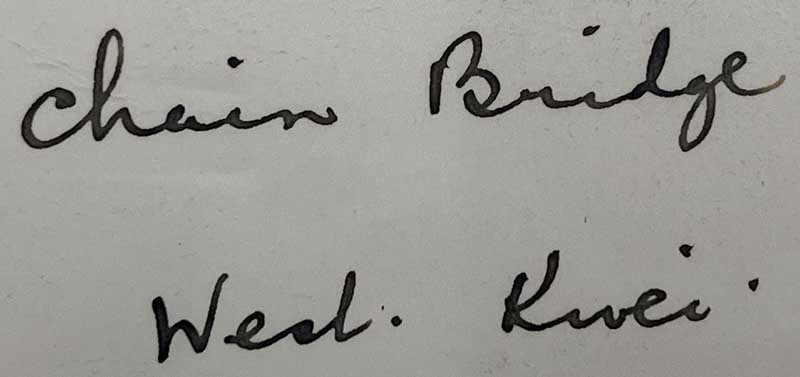 Chain Bridge
West. Kwei.